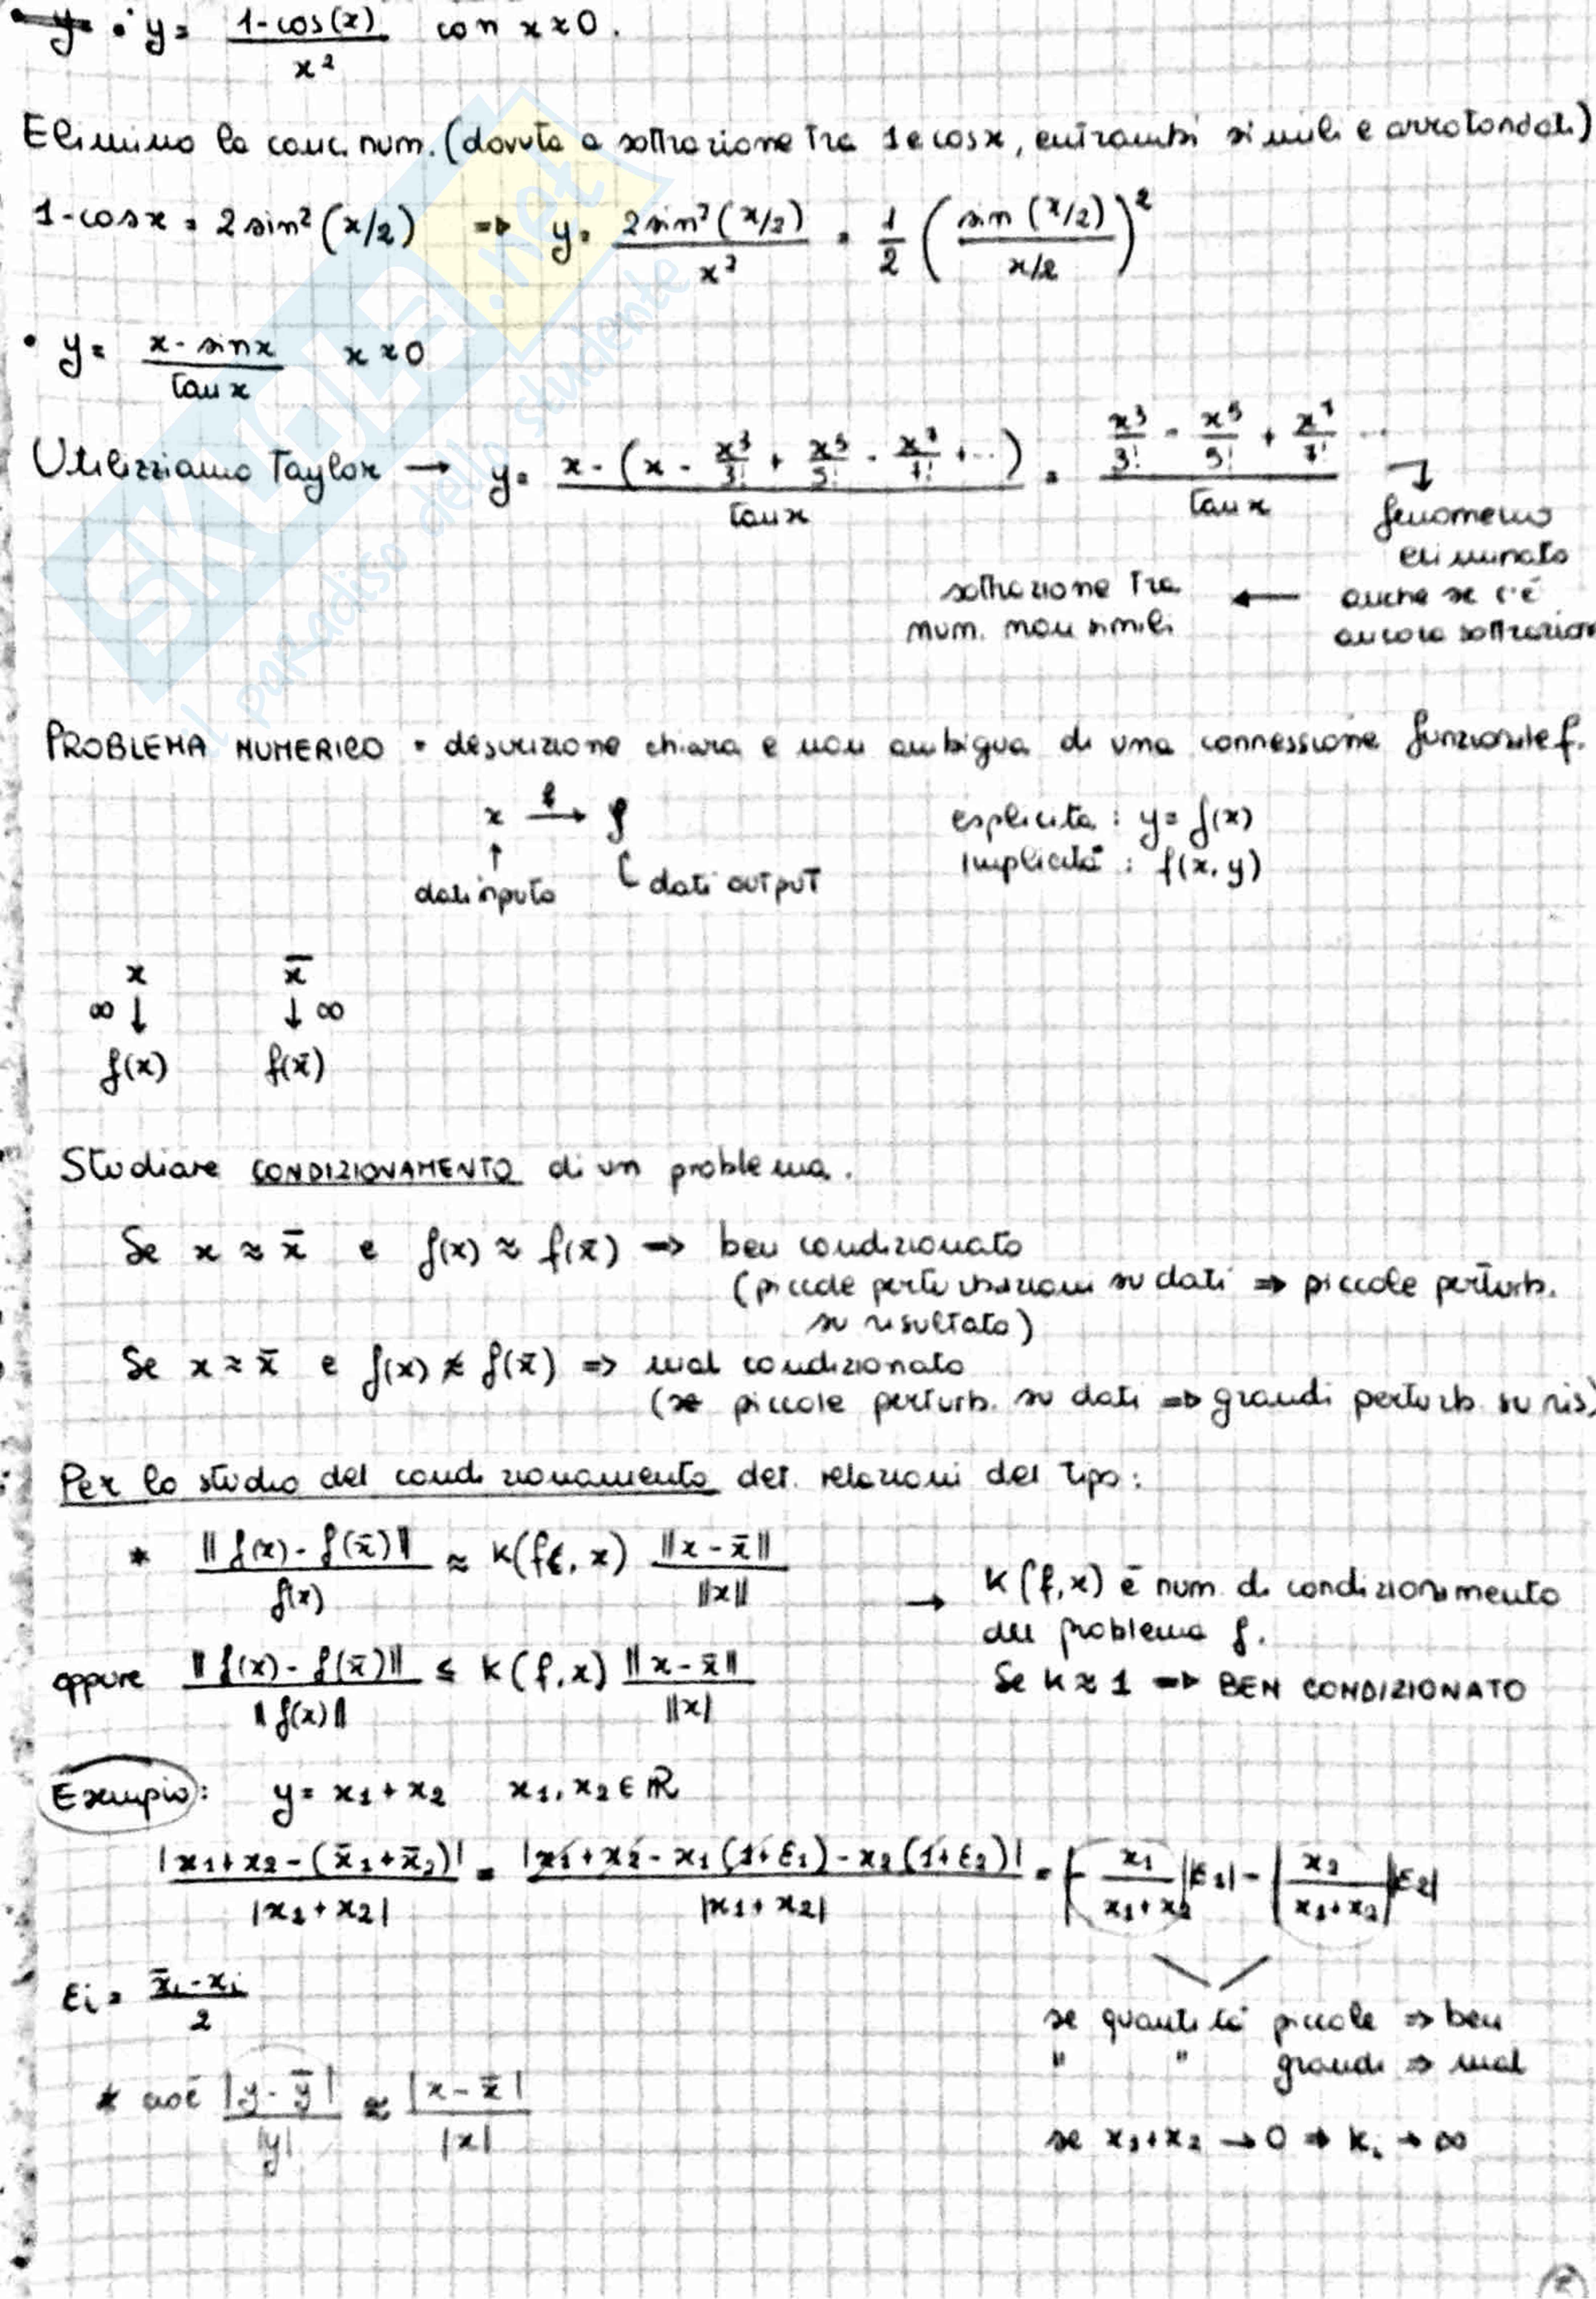 y= • y = (1-cos(x))/x² con x≈0.
Elimino la canc. num. (dovuta a sottrazione tra 1 e cosx, entrambi simili e arrotondati)
1-cosx = 2sin²(x/2) ⇒ y = 2sin²(x/2)/x² = 1/2 (sin(x/2)/(x/2))²
• y = (x-sinx)/tanx x≈0
Utilizziamo Taylor → y = (x-(x - x³/3! + x⁵/5! - x⁷/7! + ...))/tanx = (x³/3! - x⁵/5! + x⁷/7! ...)/tanx
fenomeno
eliminato
anche se c'è
ancora sottrazion
← sottrazione tra
num. non simili
PROBLEMA NUMERICO = descrizione chiara e non ambigua di una connessione funzionale f.
x →f y
↑ dati inputo
dati output
esplicita : y = f(x)
implicita : f(x, y)
x x̄
∞ ↓ ↓ ∞
f(x) f(x̄)
Studiare CONDIZIONAMENTO di un problema.
Se x ≈ x̄ e f(x) ≈ f(x̄) ⇒ ben condizionato
(piccole perturbazioni su dati ⇒ piccole perturb.
su risultato)
Se x ≈ x̄ e f(x) ≉ f(x̄) ⇒ mal condizionato
(se piccole perturb. su dati ⇒ grandi perturb su ris)
Per lo studio del condizionamento det. relazioni del tipo:
* ‖f(x) - f(x̄)‖/f(x) ≈ K(f, x) ‖x - x̄‖/‖x‖
→ K(f,x) è num. di condizionamento
del problema f.
Se K≈1 ⇒ BEN CONDIZIONATO
oppure ‖f(x) - f(x̄)‖/‖f(x)‖ ≤ K(f,x) ‖x - x̄‖/‖x|
Esempio: y = x₁ + x₂ x₁, x₂ ∈ ℝ
|x₁+x₂-(x̄₁+x̄₂)|/|x₁+x₂| = |x₁+x₂-x₁(1+ε₁)-x₂(1+ε₂)|/|x₁+x₂| = |- x₁/(x₁+x₂)||ε₁| - |x₂/(x₁+x₂)||ε₂|
εi = (x̄i - xi)/2
se quantità piccole ⇒ ben
" " grandi ⇒ mal
se x₁+x₂ → 0 ⇒ Ki → ∞
* cioè |y - ȳ|/|y| ≈ |x - x̄|/|x|
SKUOLA.net
il paradiso dello studente